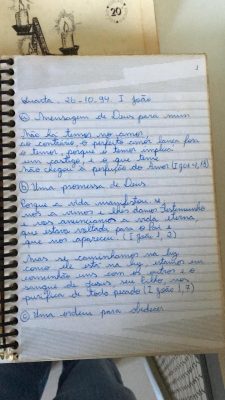 20
1
Quarta - 26-10-94 I João
a) Mensagem de Deus para mim
Não há temor no amor
ao contrário, o perfeito amor lança fora
o temor, porque o temor implica
um castigo, e o que teme
não chegou a perfeição do Amor (I Jo 4,18)
b) Uma promessa de Deus
Porque a vida manifestou-se
nós a vimos e lhes damos testemunho
e vos anunciamos a vida eterna
que estava voltada para o Pai e
que nos apareceu (I João 1, 2)
Mas se caminhamos na luz
como ele está na luz, estamos em
comunhão uns com os outros e o
sangue de Jesus seu Filho, nos
purifica de todo pecado (I João 1,7)
c) Uma ordem para obedecer